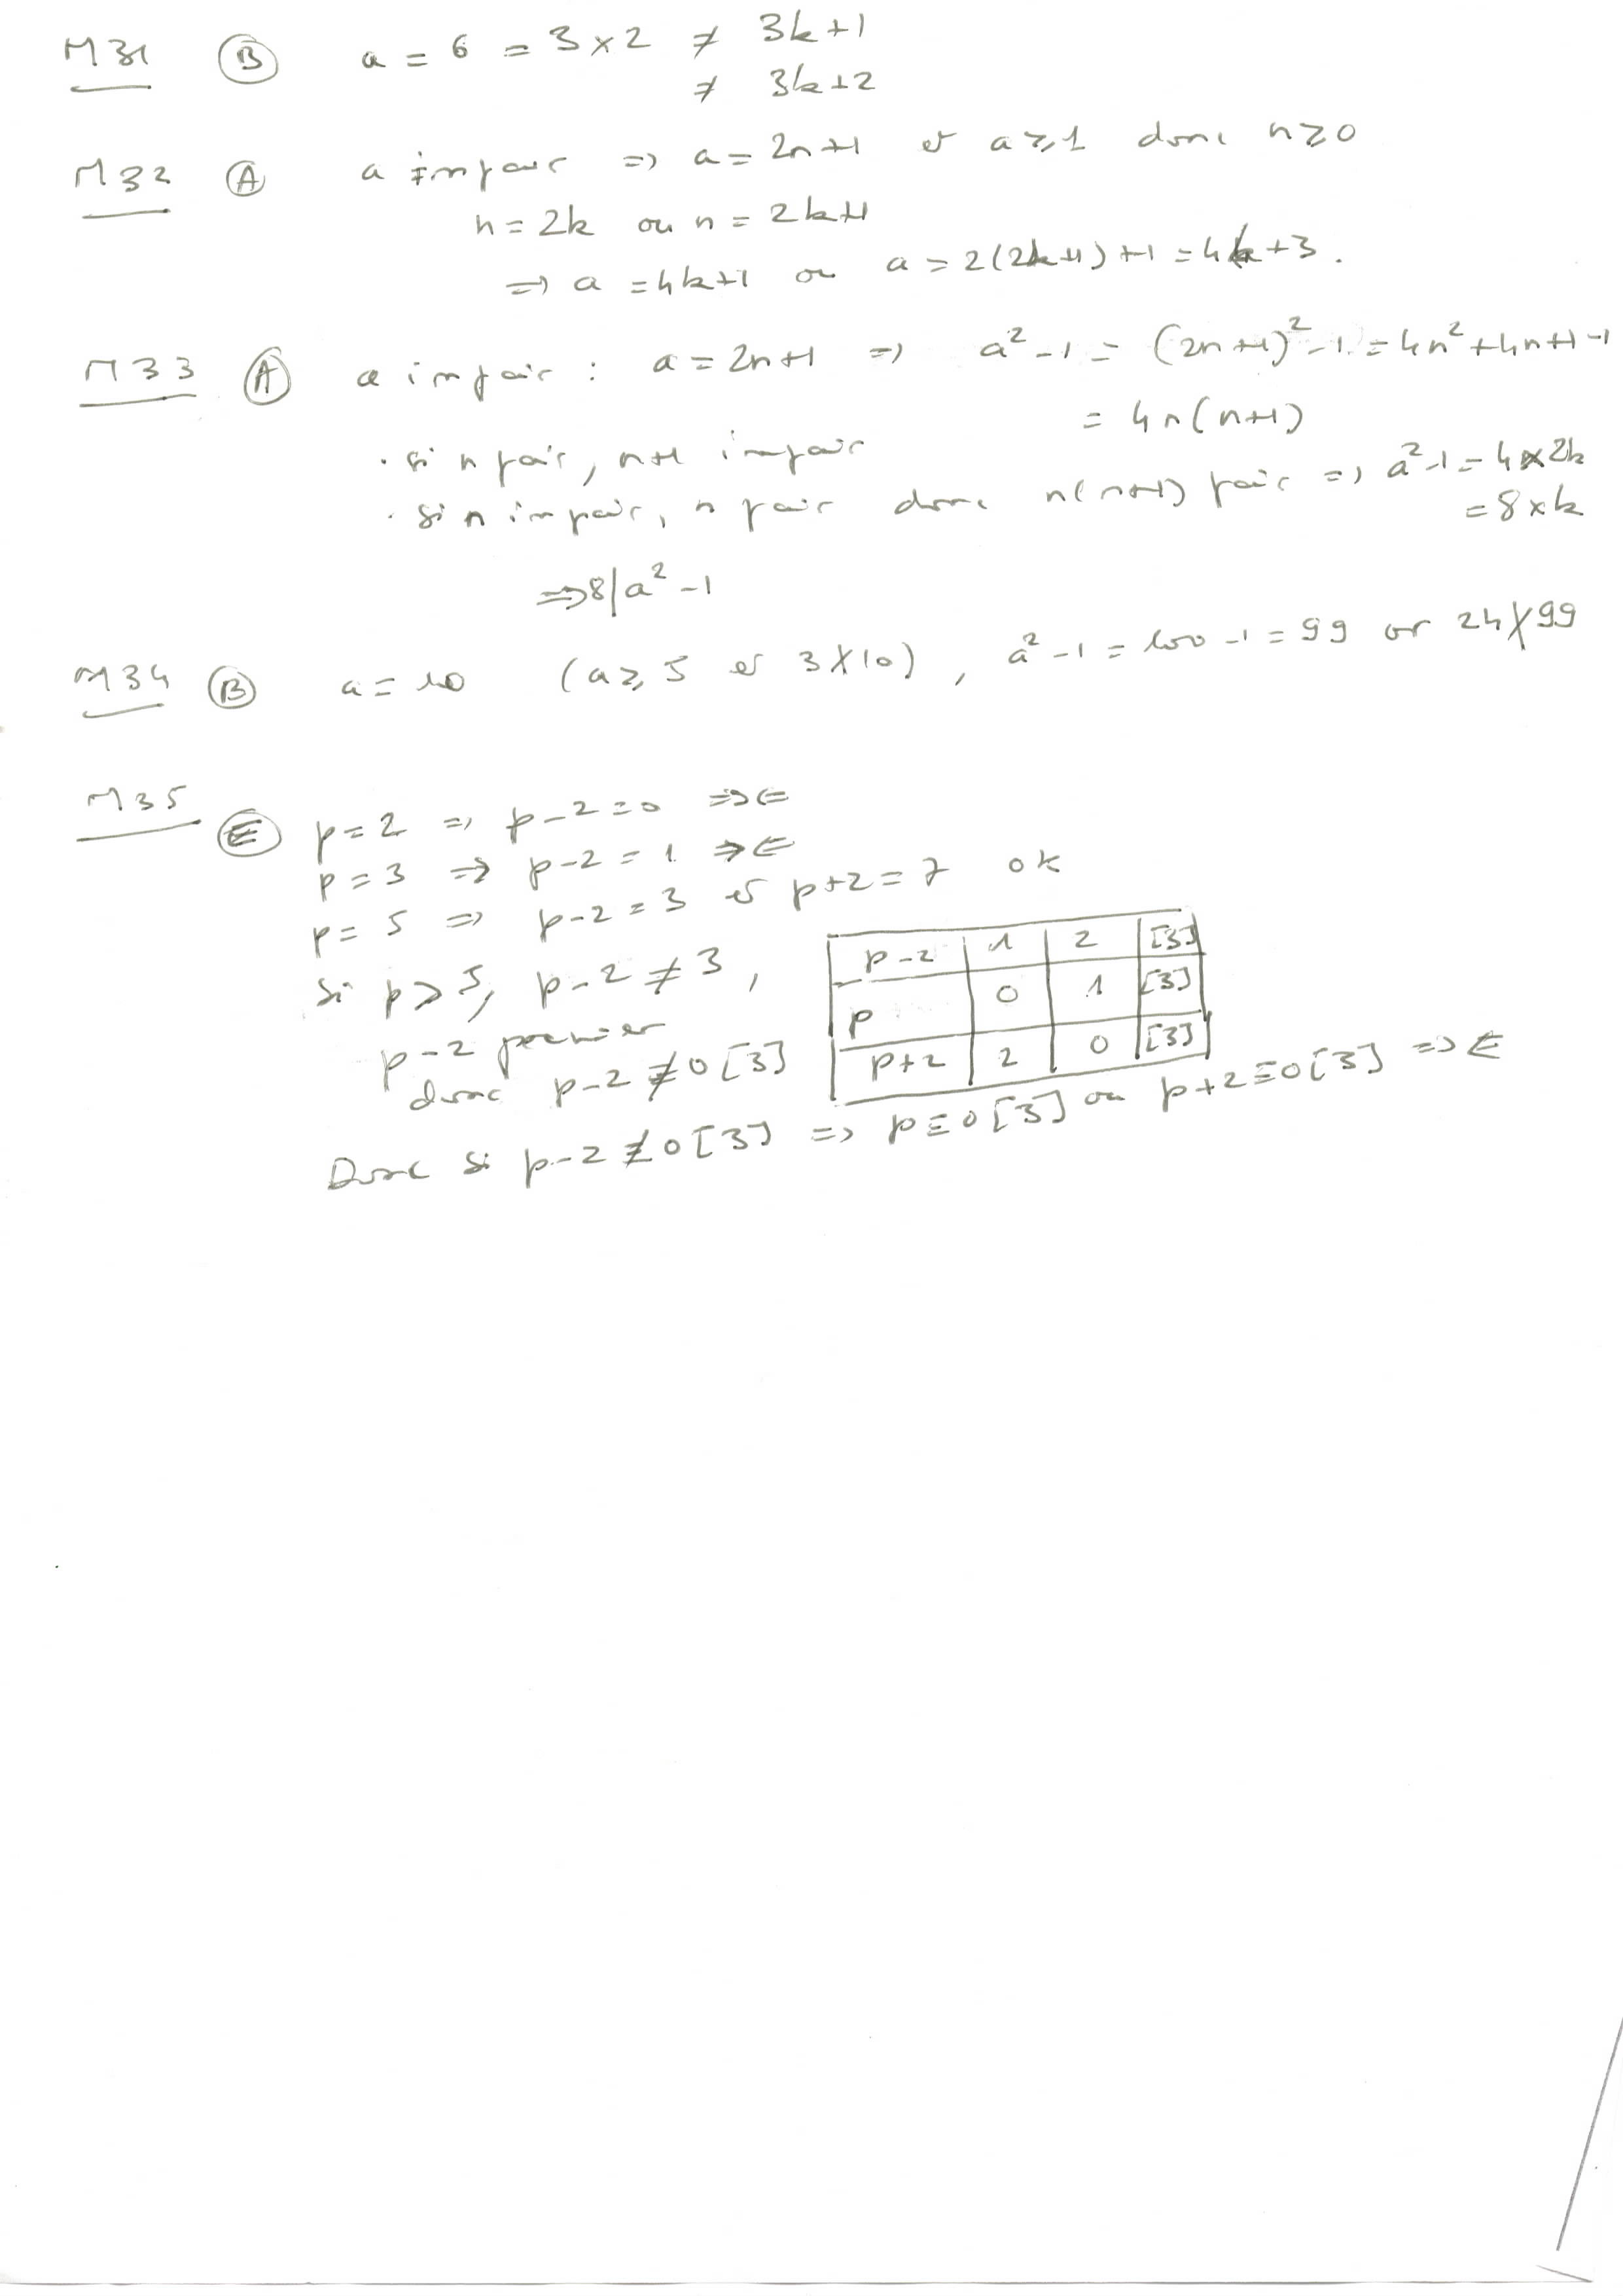 M31 Ⓑ a = 6 = 3×2 ≠ 3k+1
≠ 3k+2
M32 Ⓐ a impair => a = 2n+1 et a⩾1 donc n⩾0
n = 2k ou n = 2k+1
=> a = 4k+1 ou a = 2(2k+1)+1 = 4k+3.
M33 Ⓐ a impair : a = 2n+1 => a²-1 = (2n+1)²-1 = 4n²+4n+1-1
= 4n(n+1)
• si n pair, n+1 impair
• si n impair, n pair donc n(n+1) pair => a²-1 = 4×2k
= 8×k
=> 8|a²-1
M34 Ⓑ a = 10 (a⩾5 et 3∤10), a²-1 = 100-1 = 99 or 24∤99
M35 Ⓔ p=2 => p-2=0 =><=
p=3 => p-2=1 =><=
p=5 => p-2=3 et p+2=7 ok
Si p>5, p-2≠3,
p-2 premier
donc p-2≢0[3]
p-2 1 2 [3]
p 0 1 [3]
p+2 2 0 [3]
Donc si p-2≢0[3] => p≡0[3] ou p+2≡0[3] =><=